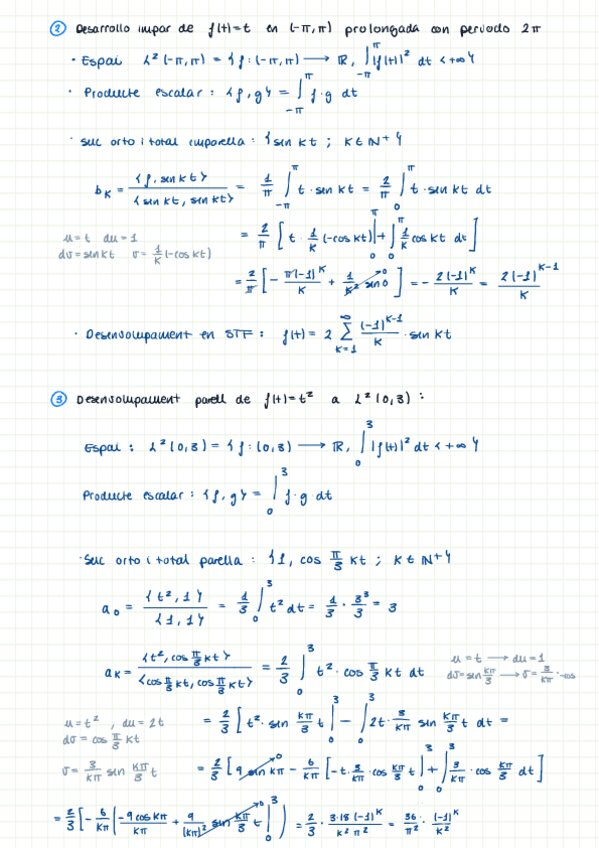 ② Desarrollo impar de f(t)=t en (-π,π) prolongada con periodo 2π
· Espai L²(-π,π) = {f:(-π,π) ⟶ ℝ, ∫_{-π}^{π} |f(t)|² dt < +∞}
· Producte escalar: <f,g> = ∫_{-π}^{π} f·g dt
· Suc orto i total imparella: {sin kt ; k∈ℕ+}
b_k = <f, sin kt> / <sin kt, sin kt> = 1/π ∫_{-π}^{π} t·sin kt = 2/π ∫_0^π t·sin kt dt
u=t du=1
dv=sin kt v= 1/k (-cos kt)
= 2/π [t · 1/k (-cos kt)|_0^π + ∫_0^π 1/k cos kt dt]
= 2/π [- π(-1)^k / k + 1/k² sin 0 → 0] = - 2(-1)^k / k = 2(-1)^{k-1} / k
· Desenvolupament en STF: f(t) = 2 ∑_{k=1}^∞ (-1)^{k-1} / k · sin kt
③ Desenvolupament parell de f(t)=t² a L²(0,3):
Espai: L²(0,3) = {f:(0,3) ⟶ ℝ, ∫_0^3 |f(t)|² dt < +∞}
Producte escalar: <f,g> = ∫_0^3 f·g dt
· Suc orto i total parella: {1, cos π/3 kt ; k∈ℕ+}
a_0 = <t²,1> / <1,1> = 1/3 ∫_0^3 t² dt = 1/3 · 3³/3 = 3
a_k = <t², cos π/3 kt> / <cos π/3 kt, cos π/3 kt> = 2/3 ∫_0^3 t² · cos π/3 kt dt
u=t ⟶ du=1
dv=sin kπ/3 ⟶ v= 3/kπ ·-cos
u=t² , du=2t
dv= cos π/3 kt
v= 3/kπ sin kπ/3 t
= 2/3 [t²· sin kπ/3 t|_0^3 - ∫_0^3 2t· 3/kπ sin kπ/3 t dt =
= 2/3 [9 sin kπ → 0 - 6/kπ [-t· 3/kπ · cos kπ/3 t|_0^3 + ∫_0^3 3/kπ · cos kπ/3 dt]
= 2/3 [- 6/kπ (-9 cos kπ / kπ + 9/(kπ)² sin kπ/3 t|_0^3 → 0)] = 2/3 · 3·18(-1)^k / k²π² = 36/π² · (-1)^k / k²